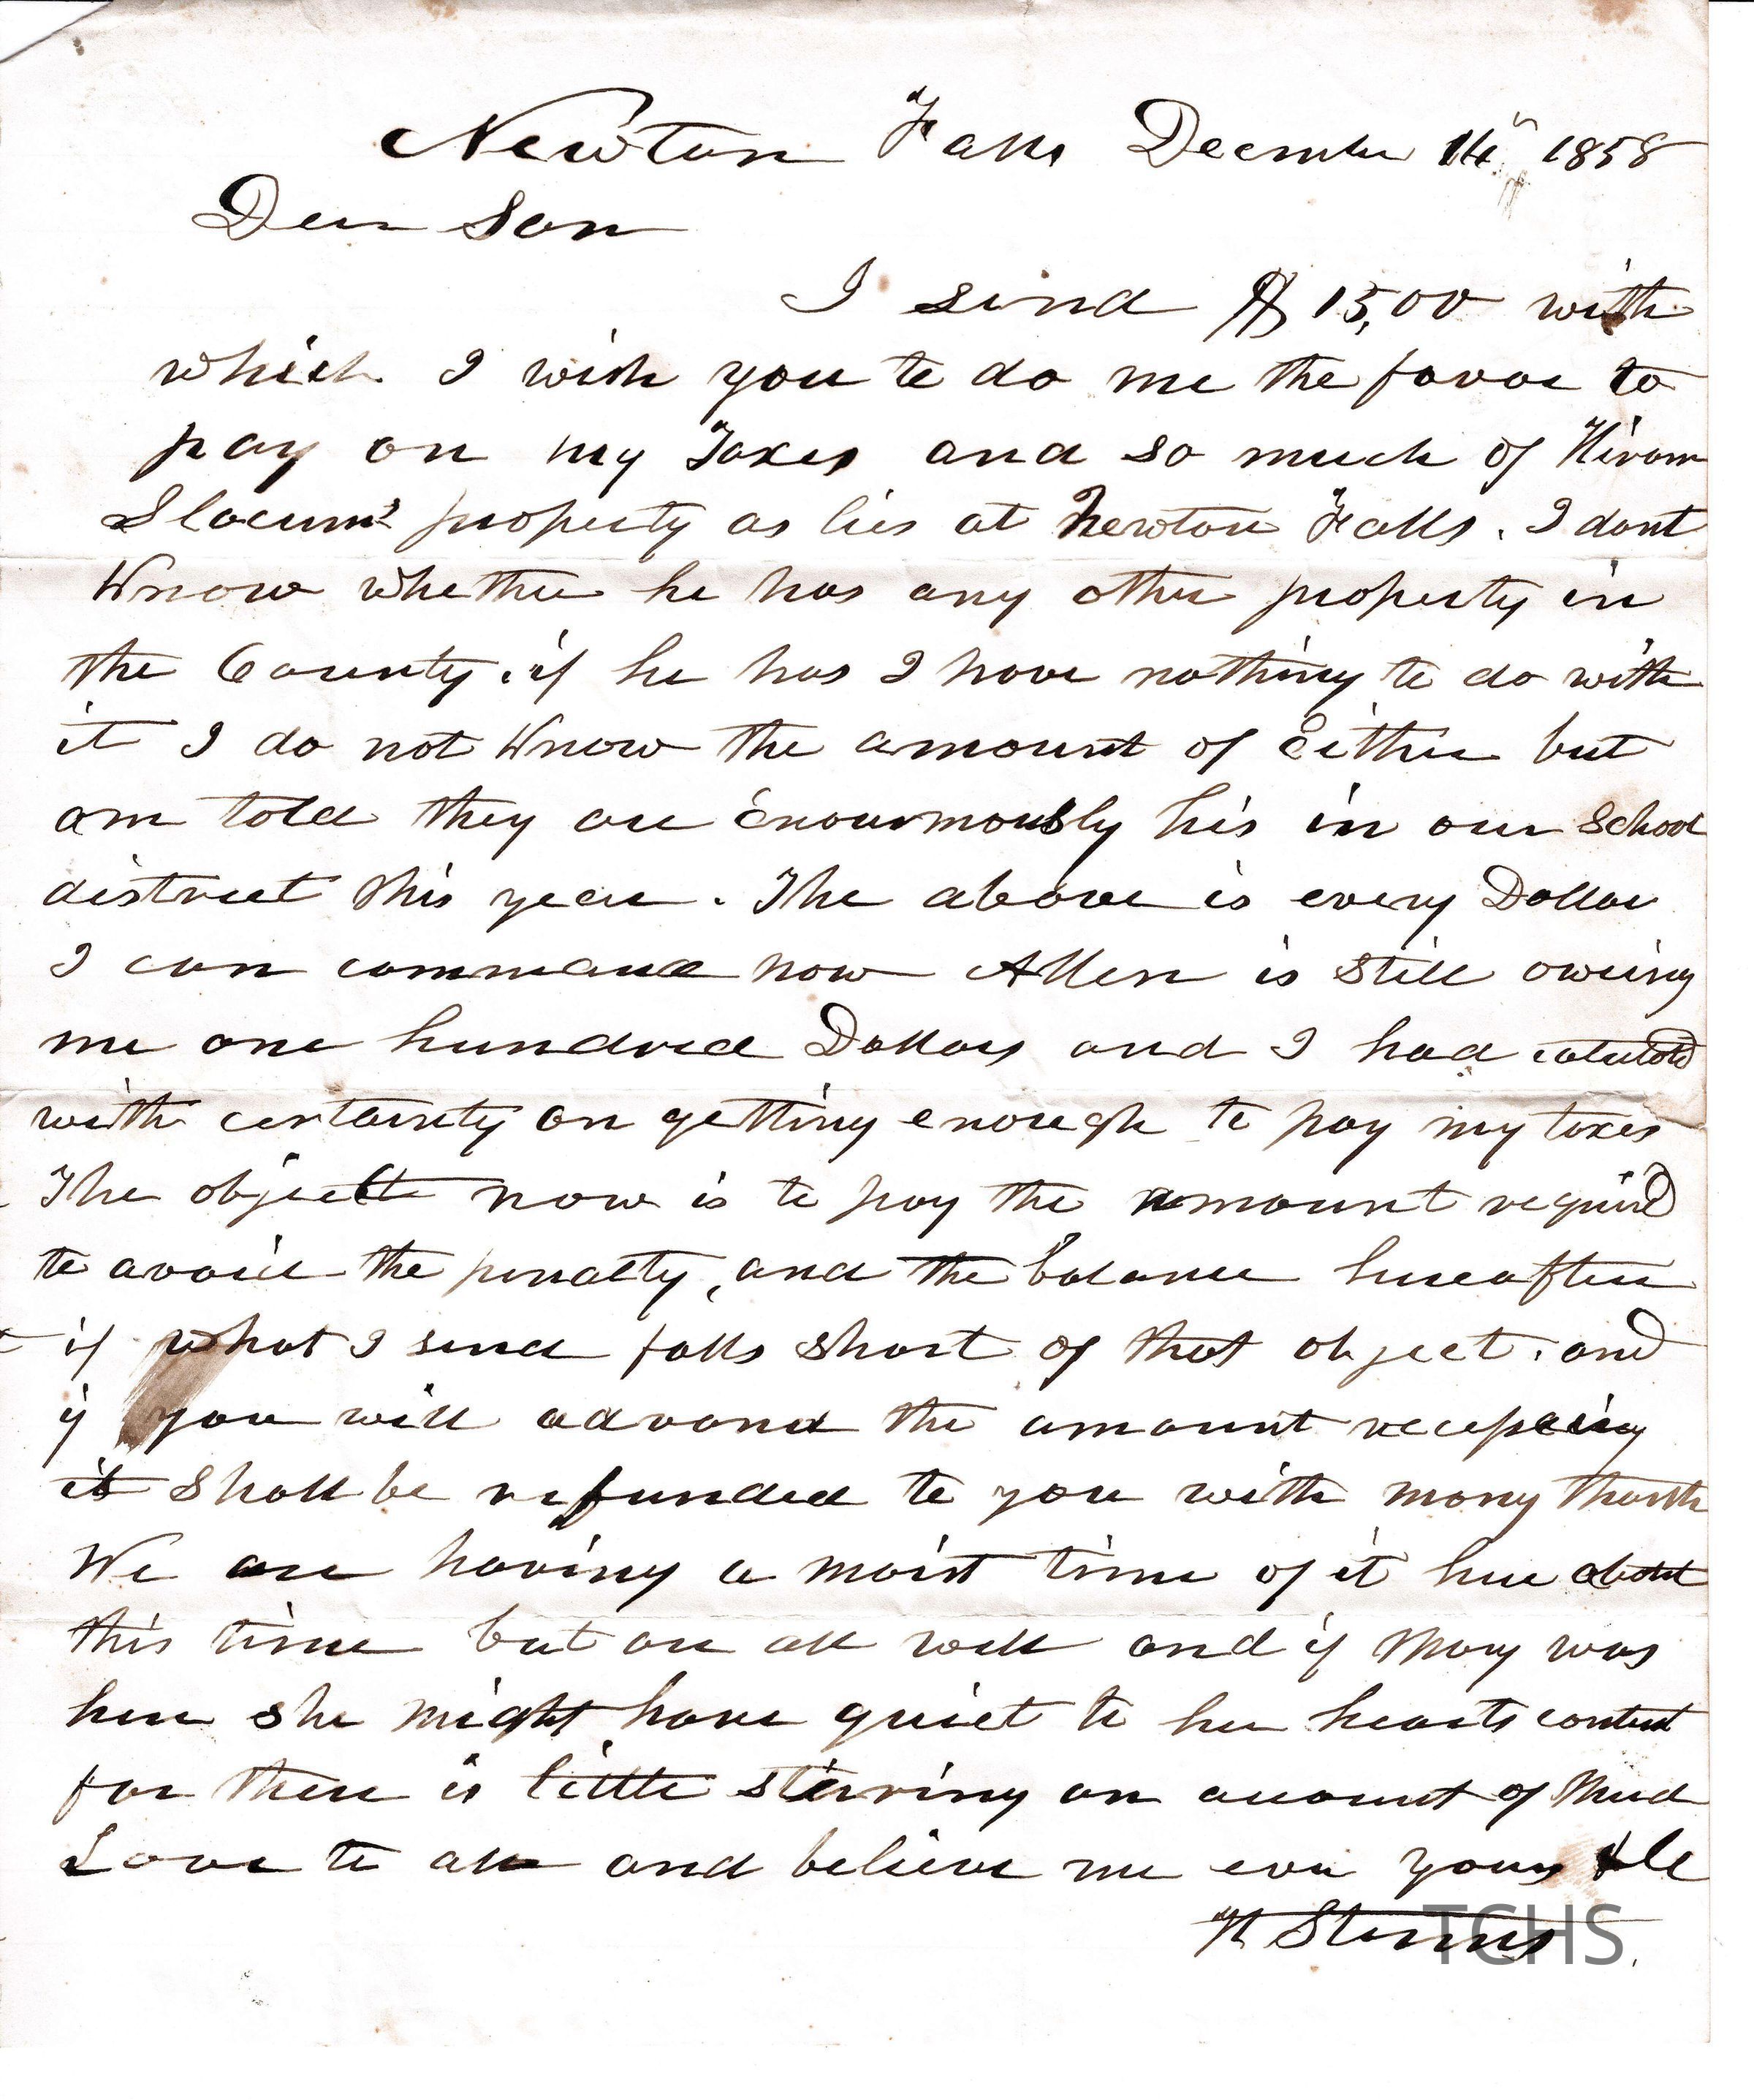 Newton Falls December 14th 1858
Dear Son
I send $15,00 with
which I wish you to do me the favor to
pay on my Taxes and so much of Hiram
Slocum's property as lies at Newton Falls. I dont
Know whether he has any other property in
the County. if he has I have nothing to do with
it I do not Know the amount of Either but
am told they are Enourmously his in our School
district this year. The above is every Dollar
I can command now Allen is still owing
me one hundred Dollars and I had
with certainty on getting enough to pay my taxes
The object now is to pay the amount requird
to avoid the penalty, and the balance hereafter
if what I send falls short of that object. and
if you will advance the amount
it shall be refunded to you with many thanks
We are having a moist time of it here about
this time but are all well and if Mary was
here she might have quiet to her hearts content
for there is little stirring on account of Mud
Love to all and believe me ever yours &c
Sterns
TCHS